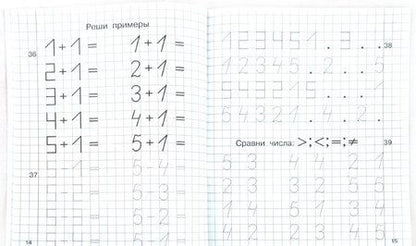 Реши примеры
36
1+1= 1+1=
2+1= 2+1=
3+1= 3+1=
4+1= 4+1=
5+1= 5+1=
37
5-1= 5-4=
5-2= 5-3=
14
123451.3... 38
12345.2...5
543215...1
54321.4.2.
Сравни числа: >;<;=;≠ 39
5 3 4 4 2 1
2 3 3 2 5 5
1 4 5 1 3 4
15